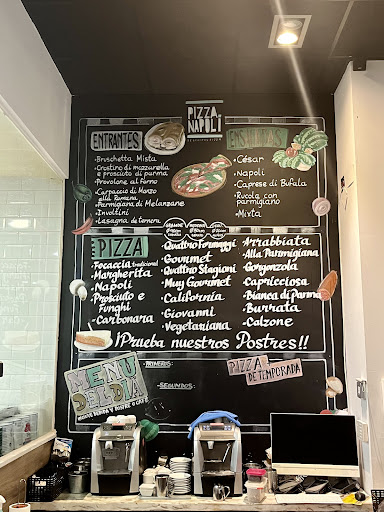 PIZZA
NAPOLI
ENTRANTES
•Bruschetta Mista
•Crostino di mozzarella
e prosciuto di parma
•Provolone al Forno
•Carpaccio di Manzo
alla Rumana
•Parmigiana di Melanzane
•Involtini
•Lasagna de Ternera
ENSALADAS
•César
•Napoli
•Caprese di Bufala
•Rucola con
parmigiano
•Mixta
PIZZA
•Focaccia tradicional
•Margherita
•Napoli
•Prosciuto e
Funghi
•Carbonara
•Quattro Formaggi
•Gourmet
•Quattro Stagioni
•Muy Gourmet
•California
•Giovanni
•Vegetariana
•Arrabbiata
•Alla Parmigiana
•Gorgonzola
•Capricciosa
•Bianca di Parma
•Burrata
•Calzone
¡Prueba nuestros Postres!!
MENU
DEL DIA
•PRIMEROS:
•SEGUNDOS:
PIZZA
DE TEMPORADA